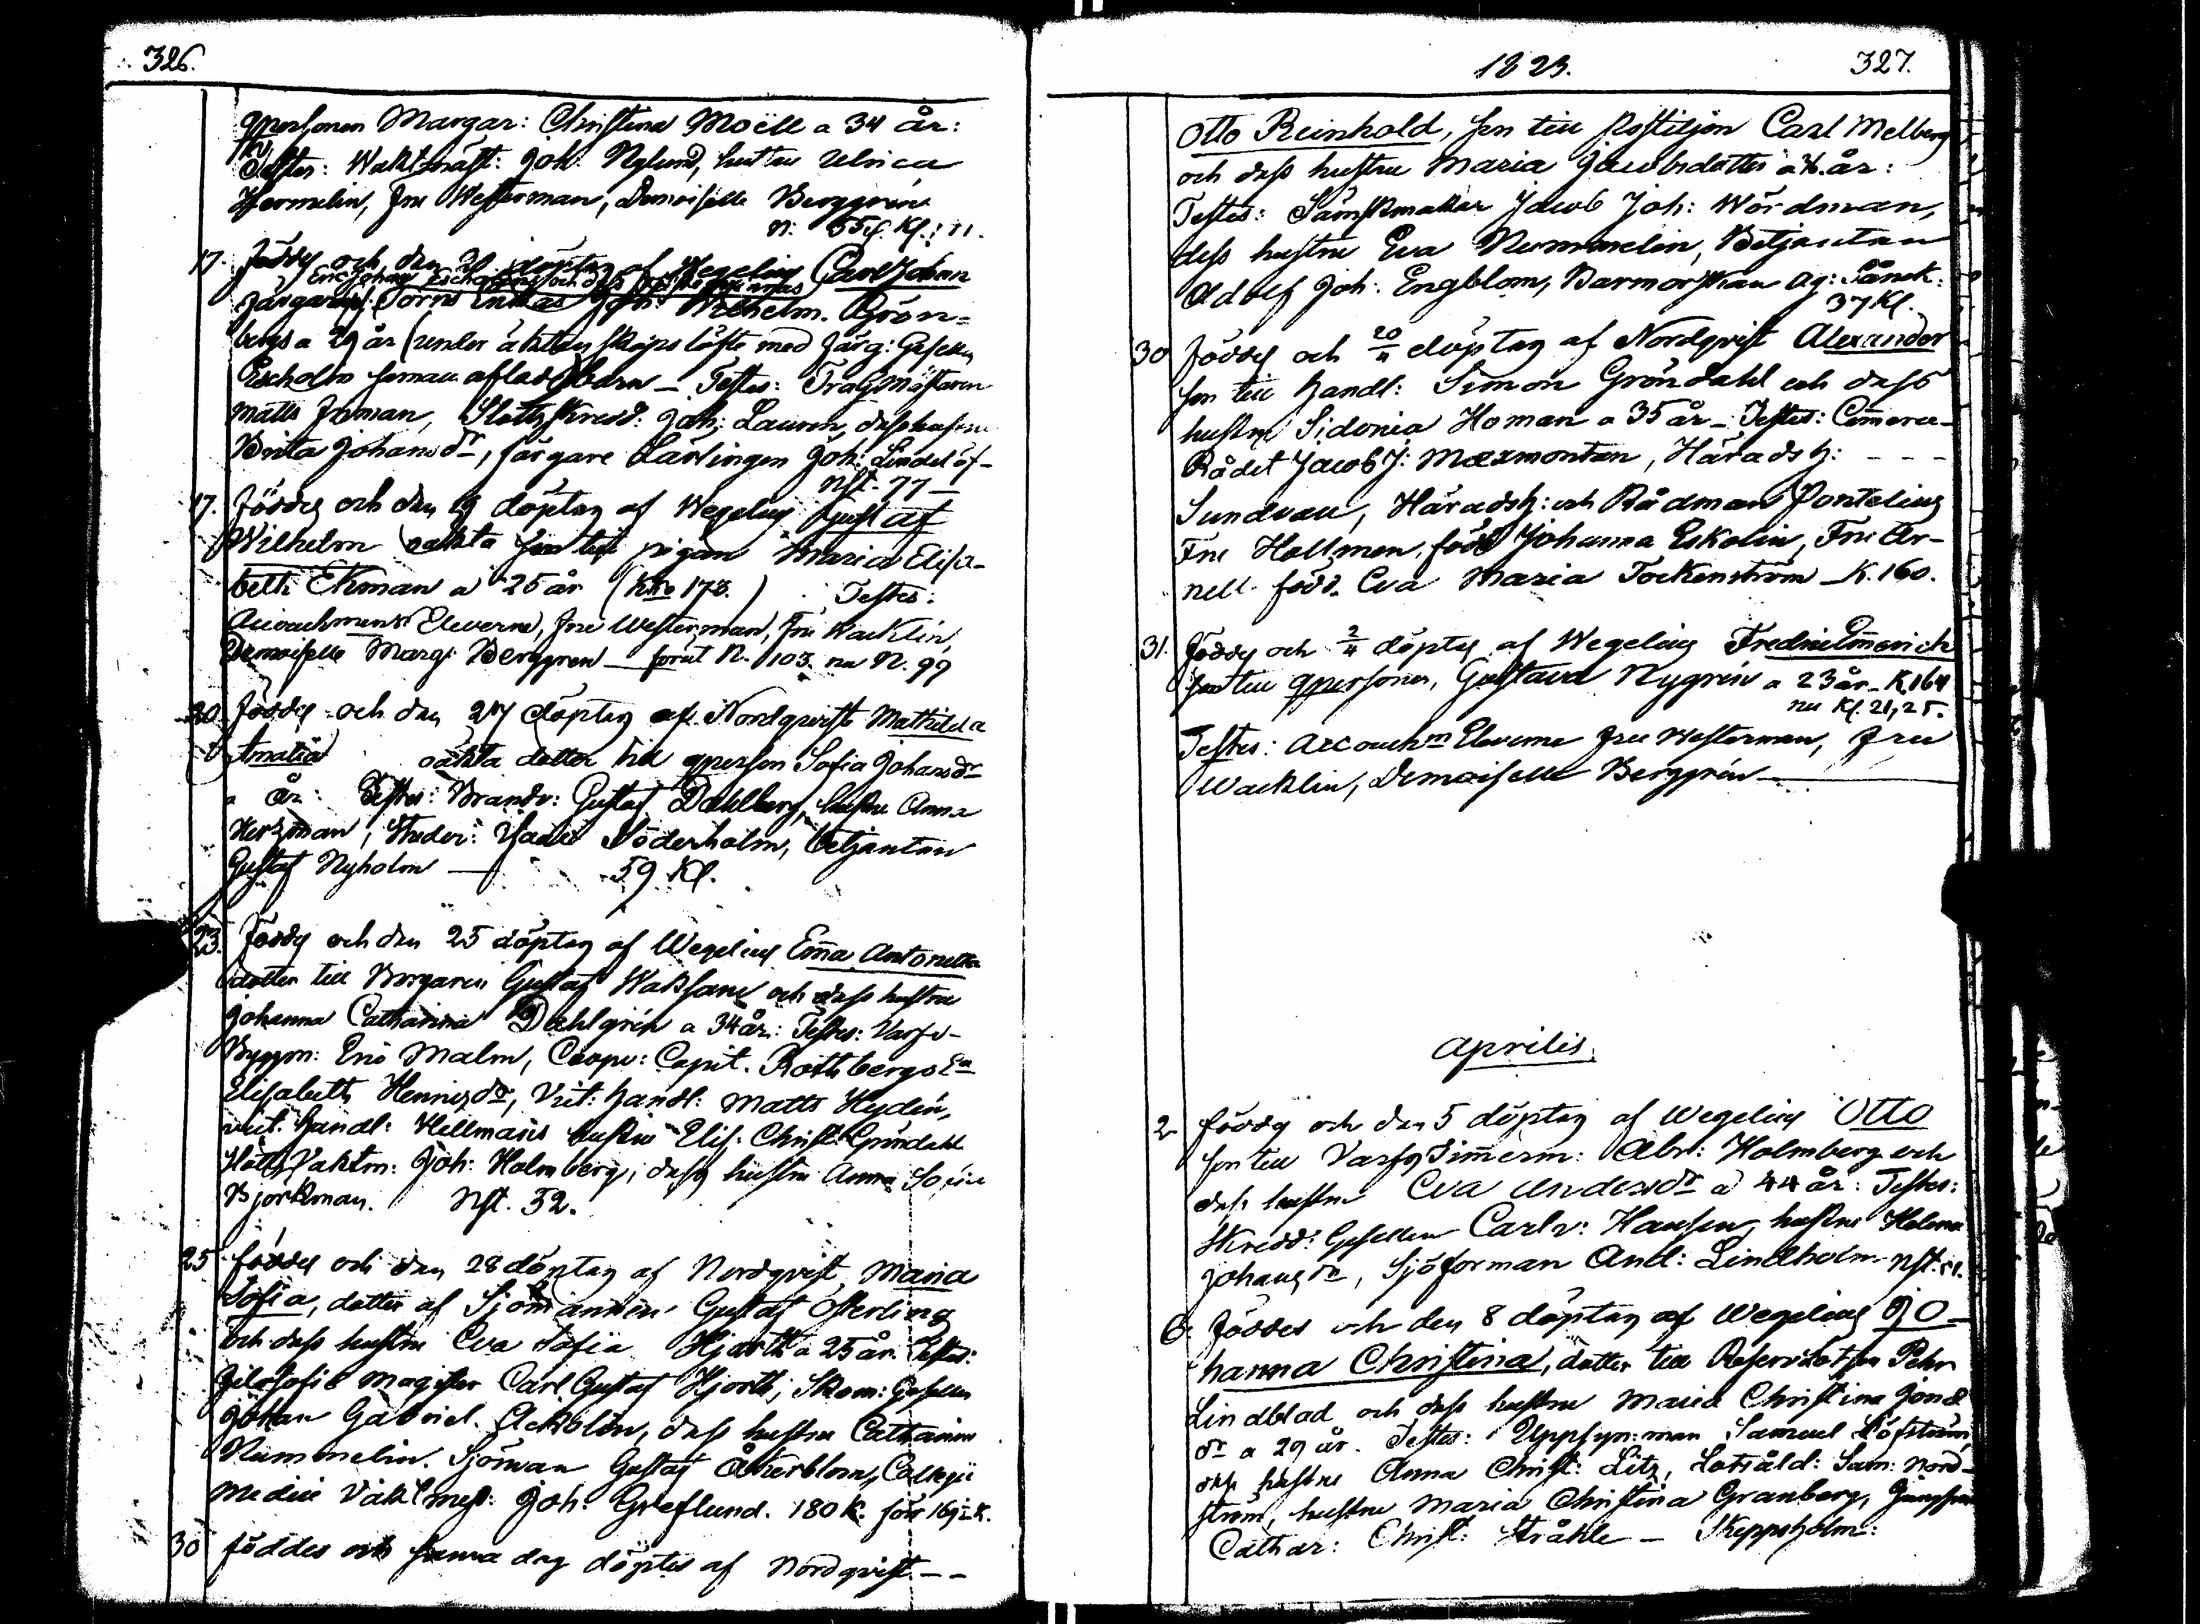 326.
qpersonen Margar: Christina Moëll a 34 år:
Testes: Waktmäst: Joh: Nylund, hustru Ulrica
Hermelin, Fru Westerman, Demoiselle Berggrén
n: 55 Kl:
17. föddes och den döptes af Wegelius Carl Johan
Eric Johan Eschol och dess
färgare Enkas Joh: Wilhelm. Grön-
bergs a 29 år (under äktenskaps löfte med färg: Gesellen
Escholm aflad) barn – Testes:
Matts Inman, Slotts Skredd: Joh: Lauren, dess hustru
Brita Johansdr, färgare Lärlingen Joh: Lindelöf –
Nst. 77 –
17. föddes och den 19 döptes af Wegelius Gustaf
Wilhelm oäkta son till pigan Maria Elisa-
beth Ekman a 25 år (Kno 173.) Testes:
Accouchments Eleverne, Fru Westerman, Fru Wacklin,
Demoiselle Marg: Berggren – förut N. 103. nu N. 99
20. föddes och den 24 döptes af Nordqvist Mathilda
Amalia oäkta dotter till qperson Sofia Johansdr
a år: Testes: Brandv: Gustaf Dahlberg, hustru Anna
Hertzman, Studer: Söderholm, betjenten
Gustaf Nyholm – 59 Kl.
23. föddes och den 25 döptes af Wegelius Em̄a Antonetta
dotter till Borgaren Gustaf Waksam och dess hustru
Johanna Catharina Dahlgrén a 34 år: Testes: Varfs-
Byggm: Eric Malm, Coopv: Capit. Rothbergs Ea
Elisabeth Hennigsdr, Vict: handl: Matts Hydén,
vict. handl: Hellmans hustru Elis: Christ: Gröndahl
Vaktm: Joh: Holmberg, dess hustru Anna Sofia
Björkman. Nst. 52.
25 föddes och den 28 döptes af Nordqvist Maria
Sofia, dotter af Sjömannen Gustaf Österling
och dess hustru Eva Sofia Hjorth a 25 år. Testes:
Filosofie Magister Carl Gustaf Hjorth, Skom: Gesellen
Johan Gabriel. Acklin, dess hustru Catharina
Nummelin. Sjöman Gustaf Åkerblom, Collegii
Medici Vaktmest: Joh: Greflund. 180 K. förr 169 K.
30 föddes och samma dag döptes af Nordqvist – –
1823. 327.
Otto Reinhold, son till Postiljon Carl Melberg
och dess hustru Maria Jacobsdotter a 36 år:
Testes: Sämskmakar Jacob Joh: Wördman,
dess hustru Eva Nummelin, Betjenten
Adolf Joh: Engblom, Barmorskan Ag: Sånek:
37 Kl.
30 föddes och 20/4 döptes af Nordqvist Alexander
son till handl: Simon Gröndahl och dess
hustru Sidonia Homan a 35 år – Testes: Com̄erce-
Rådet Jacob J: Maxmontan, Häradsh: – – –
Sundvall, Häradsh: och Rådman Pontelius
Fru Holtzmen, född Johanna Eskolin, Fru Ar-
nell. född. Eva Maria Tockenström – K. 160.
31. föddes och 2/4 döptes af Wegelius Fredric Em̄erich
son till qpersonen, Gustava Nygrén a 23 år – K 164
nu Kl. 21, 25.
Testes: Accouchm Eleverne Fru Westerman, Fru
Wacklin, Demoiselle Berggrén –
Aprilis.
2. föddes och den 5 döptes af Wegelius Otto
son till Varfs Tim̄erm: Abr: Holmberg och
dess hustru Eva Andersdr a 44 år: Testes:
Skredd: Gesellen Carl v: Hausen, hustru Helena
Johansdr, Sjöförman And: Lindholm – Nst. 51.
6. föddes och den 8 döptes af Wegelius Jo-
hanna Christina, dotter till Reserv Lotsen Pehr
Lindblad och dess hustru Maria Christina Jons
dr a 29 år. Testes: Uppsyn: man Samuel Löfström,
dess hustru Anna Christ: Litz, Lotsåld: Sam: Nord-
ström, hustru Maria Christina Granberg, Jungfru
Cathar: Christ: Stråhle – Skeppsholm: